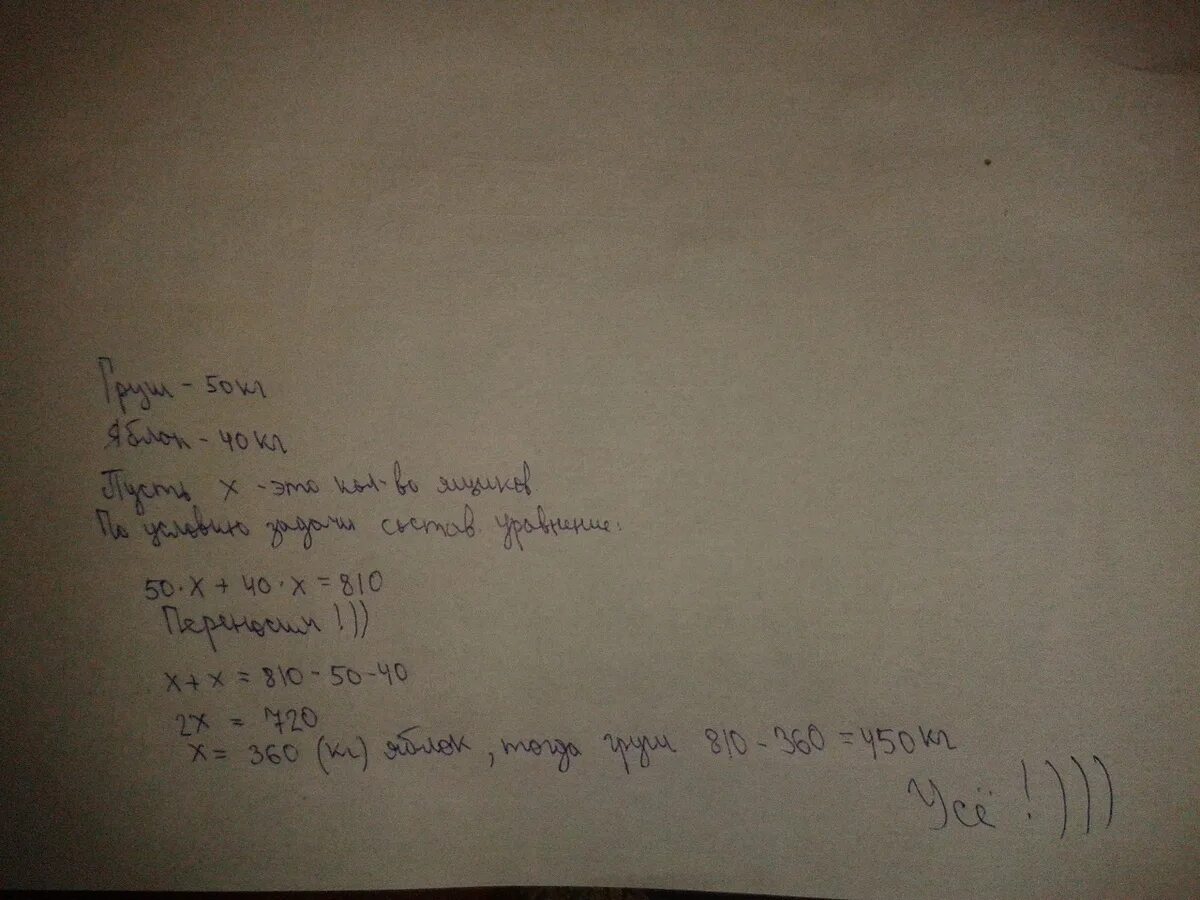 Груш - 50 кг
Яблок - 40 кг
Пусть х - это кол-во ящиков
По условию задачи состав. уравнение:
50·х + 40·х = 810
Переносим!))
х + х = 810 - 50 - 40
2х = 720
х = 360 (кг) яблок, тогда груш 810 - 360 = 450 кг
Усё!)))